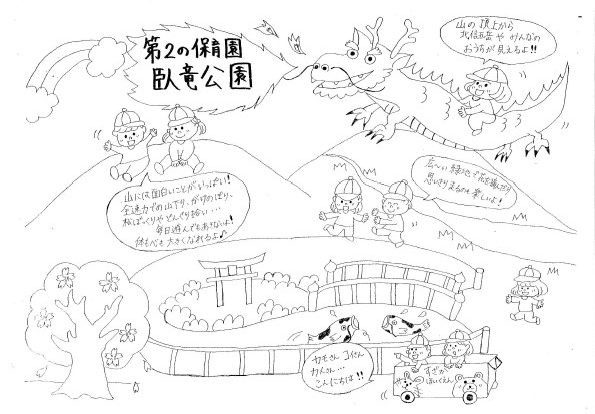 第2の保育園
臥竜公園
山の頂上から
北信五岳や みんなの
おうちが見えるよ!!
山には面白いことがいっぱい!
全速力での山下り、がけのぼり、
松ぼっくりや どんぐり拾い…
毎日遊んでもあきないよ!
体も心も大きくなれるよ♪
広〜い緑地で花を摘んだり
思いきり走るのも楽しいよ!
カモさん コイさん
カメさん…
こんにちは!!
すざか
ほいくえん